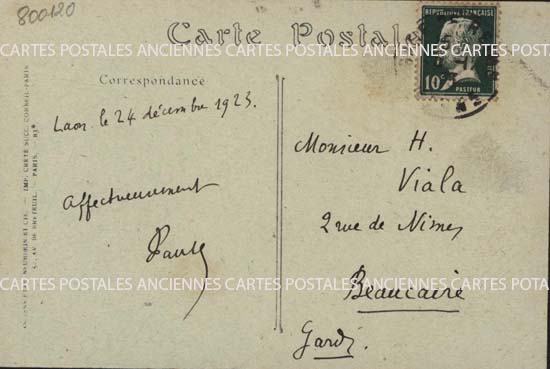 800120
Carte Postale
RÉPUBLIQUE FRANÇAISE
10c
PASTEUR
CARTES POSTALES ANCIENNES CARTES POSTALES ANCIENNES CARTES POSTALES ANCIENNES
Correspondance
Laon le 24 décembre 1923.
Affectueusement
Paul
Monsieur H.
Viala
2 rue de Nimes
Beaucaire
Gard.
CARTES POSTALES ANCIENNES CARTES POSTALES ANCIENNES CARTES POTA
NEURDEIN ET CIE. — IMP. CRÉTÉ SUCC. CORBEIL-PARIS
AV. DE BRETEUIL. — PARIS.